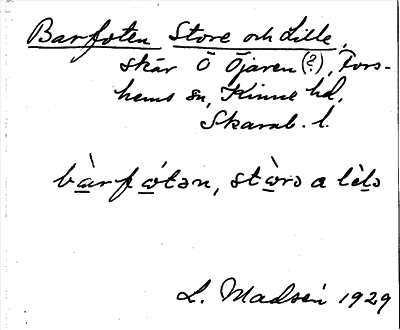 Barfoten Store och Lille,
skär Ö Öjaren (?), Fors-
hems sn, Kinne hd,
Skarab. l.
bà̱rfó̱tən, stò̱rə a lè̱lə
L. Madsén 1929